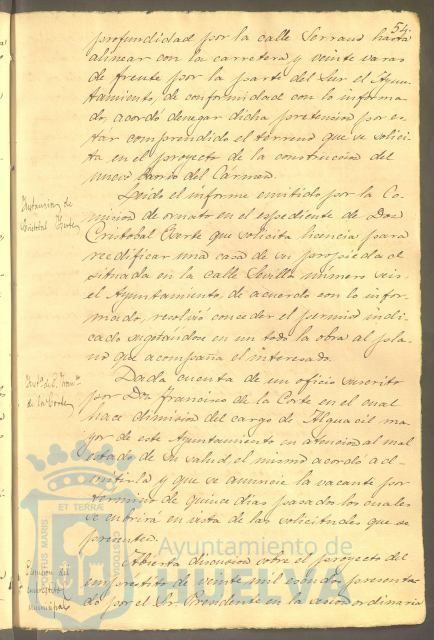 54.
profundidad por la calle Serrano hasta
alinear con la carretera y veinte varas
de frente por la parte del Sur el Ayun-
tamiento, de conformidad con lo informa-
do, acordó denegar dicha pretension por es-
tar comprendido el terreno que se solici-
ta en el proyecto de la construccion del
nuevo Barrio del Cármen.
Instancia de
Cristobal
Leido el informe emitido por la Co-
mision de ornato en el espediente de Don
Cristobal que solicita licencia para
reedificar una casa de su propiedad
situada en la calle Sevilla número seis
el Ayuntamiento, de acuerdo con lo infor-
mado, resolvió conceder el permiso indi-
cado sugetándose en un todo la obra al pla-
no que acompaña el interesado.
de la Corte
Dada cuenta de un oficio suscrito
por Don Francisco de la Corte en el cual
hace dimision del cargo de Alguacil ma-
yor de este Ayuntamiento en atencion al mal
estado de su salud el mismo acordó ad-
mitirla y que se anuncie la vacante por
término de quince dias pasados los cuales
se cubrirá en vista de las solicitudes que se
presenten.
empréstito
municipal
Abierta discusion sobre el proyecto del
empréstito de veinte mil escudos presenta-
do por el Sr. Presidente en la sesion ordinaria
ET TERRÆ
PORTUS MARIS
CUSTODIA
Ayuntamiento de
HUELVA